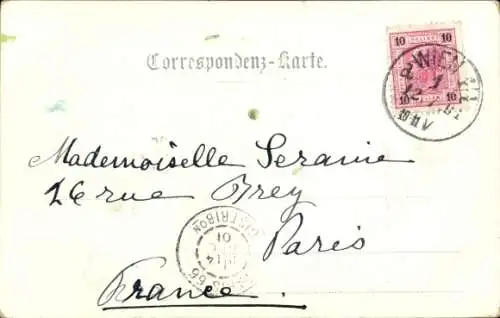 Correspondenz-Karte.
10 10
WIEN
10 10
Mademoiselle Seranie
26 rue Brey
Paris
France.
DISTRIBON
14
01